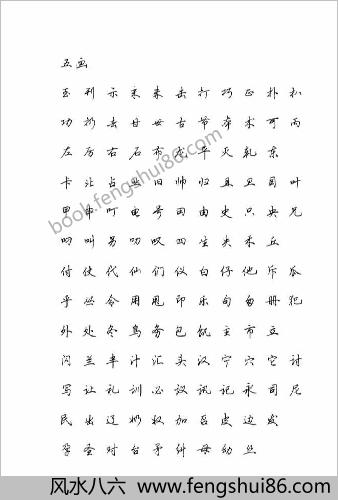 五画
玉 刊 示 末 未 击 打 巧 正 扑 扒
功 扔 去 甘 世 古 节 本 术 可 丙
左 厉 右 石 布 龙 平 灭 轧 东
卡 北 占 业 旧 帅 归 且 旦 目 叶
甲 申 叮 电 号 田 由 史 只 央 兄
叼 叫 另 叨 叹 四 生 失 禾 丘
付 仗 代 仙 们 仪 白 仔 他 斥 瓜
乎 丛 令 用 甩 印 乐 句 匆 册 犯
外 处 冬 鸟 务 包 饥 主 市 立
闪 兰 半 汁 汇 头 汉 宁 穴 它 讨
写 让 礼 训 必 议 讯 记 永 司 尼
民 出 辽 奶 奴 加 召 皮 边 发
孕 圣 对 台 矛 纠 母 幼 丝
book.fengshui86.com
风水八六 www.fengshui86.com